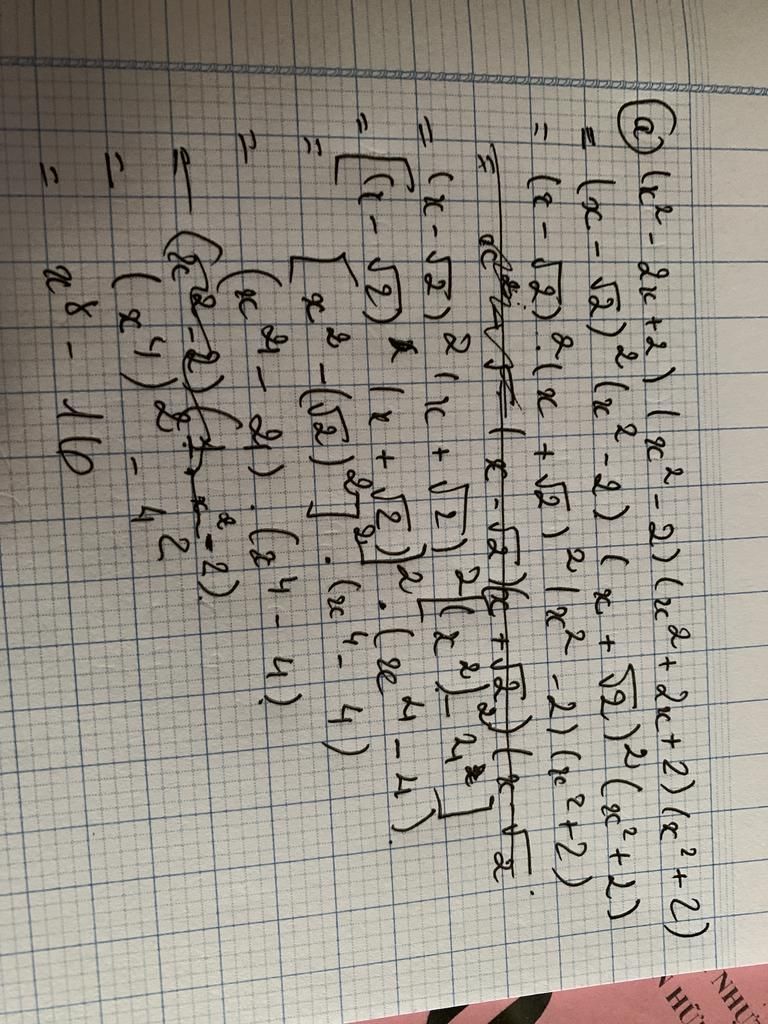 a) (x² - 2x + 2) (x² - 2) (x² + 2x + 2) (x² + 2)
= (x - √2)² (x² - 2) (x + √2)² (x² + 2)
= (x - √2)² . (x + √2)² (x² - 2) (x² + 2)
= (x - √2) (x + √2) (x - √2
= (x - √2)² (x + √2)² [(x²)² - 4]
= [(x - √2) (x + √2)]² . (x⁴ - 4)
= [x² - (√2)²]² . (x⁴ - 4)
= (x⁴ - 4) . (x⁴ - 4)
= (x² - 2) ( x² - 2)
= (x⁴)² - 4²
= x⁸ - 16
NHỰ
HỮ